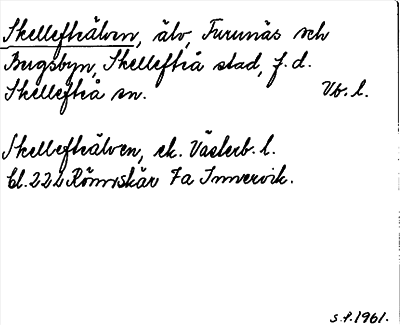 Skellefteälven, älv, Furunäs och
Bergsbyn, Skellefteå stad, f.d.
Skellefteå sn. Vb. l.
Skellefteälven, ek. Västerb. l.
bl. 222 Römskär 7a Innervik.
s.f. 1961.